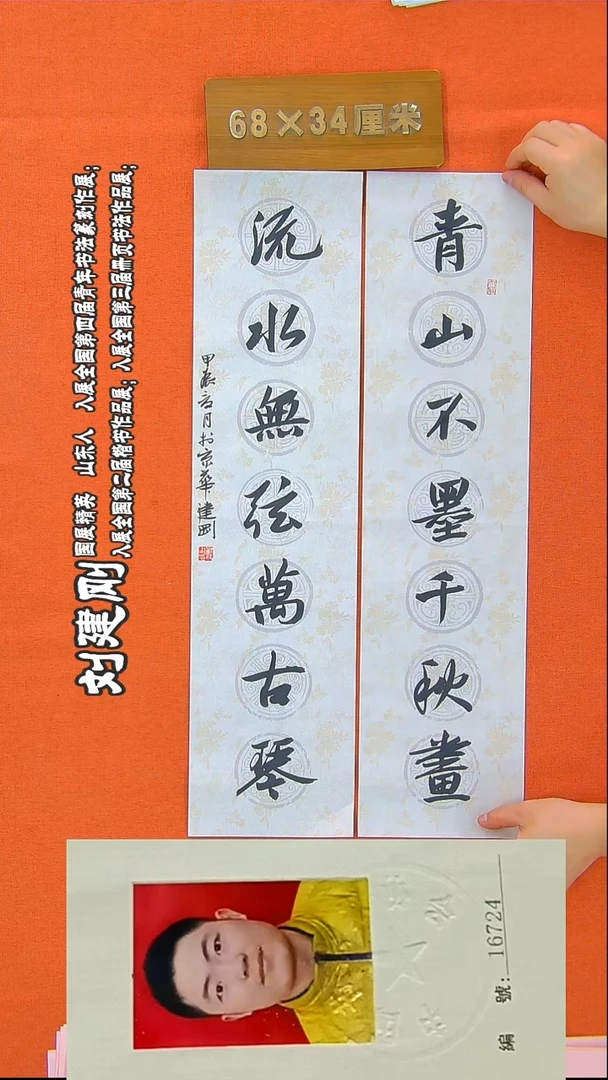 68×34厘米
青山不墨千秋畫
流水無弦萬古琴
甲辰之月於京華建剛
刘建刚
国展精英 山东人 入展全国第四届青年书法篆刻作展；
入展全国第二届楷书作品展；入展全国第三届册页书法作品展；
編 號：16724